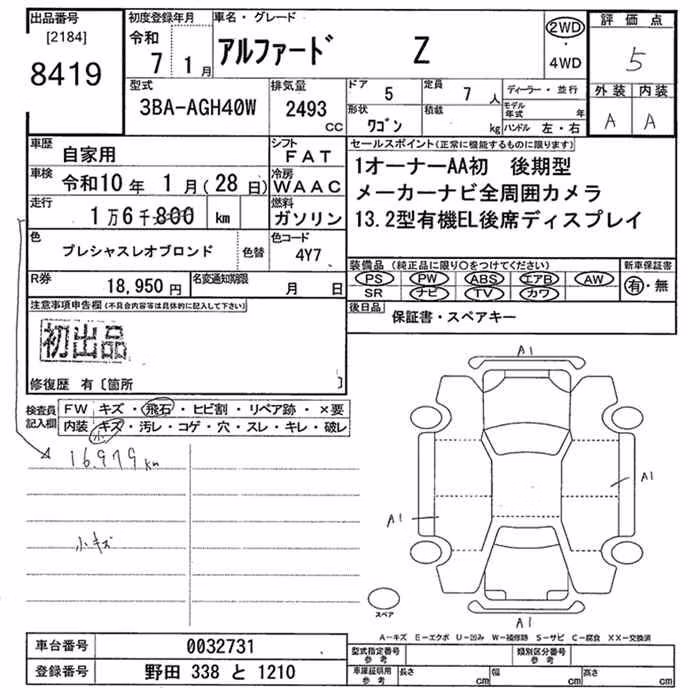 出品番号 [2184] 8419
初度登録年月 令和 7 1月
車名・グレード アルファード Z
2WD・4WD
評価点 5
外装 A 内装 A
型式 3BA-AGH40W
排気量 2493 CC
ドア 5
定員 7 人
形状 ワゴン
積載 kg
ディーラー・並行
モデル年式 年
ハンドル 左・右
車歴 自家用
シフト FAT
車検 令和10年 1月(28日)
冷房 WAAC
走行 1万6千800 km
燃料 ガソリン
色 プレシャスレオブロンド 色替
色コード 4Y7
R券 18,950円
名変通知期限 月 日
セールスポイント(正常に機能するものに限ります)
1オーナーAA初 後期型
メーカーナビ全周囲カメラ
13.2型有機EL後席ディスプレイ
装備品(純正品に限り○をつけてください)
PS PW ABS エアB AW
SR ナビ TV カワ
新車保証書 有・無
後日品 保証書・スペアキー
注意事項申告欄(不具合内容等は具体的に記入して下さい)
初出品
修復歴 有〔箇所 〕
検査員記入欄
FW キズ・飛石・ヒビ割・リペア跡・×要
内装 キズ・汚レ・コゲ・穴・スレ・キレ・破レ
小
16,979km
小キズ
A1
A1
A1
A1
スペア
A-キズ E-エクボ U-凹み W-補修跡 S-サビ C-腐食 XX-交換済
車台番号 0032731
登録番号 野田 338 と 1210
型式指定番号 参考
類別区分番号 参考
車庫証明用 参考 長さ cm 幅 cm 高さ cm